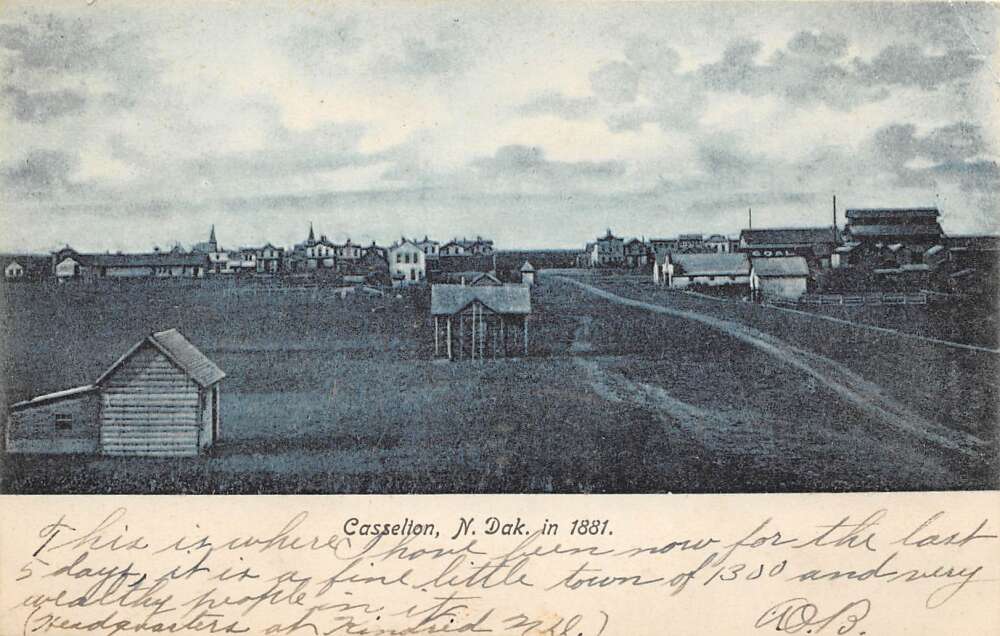 COAL
Casselton, N. Dak. in 1881.
This is where I have been now for the last
5 days, it is a fine little town of 1300 and very
wealthy people in it
(Headquarters at Kindred N.D.) A.O.B.